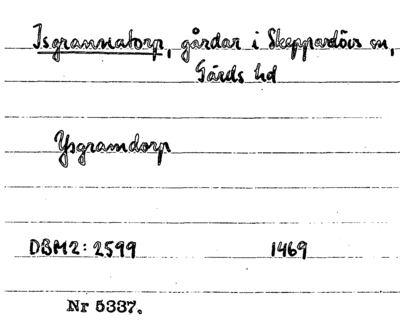 Isgrannatorp, gårdar i Skepparslövs sn,
Gärds hd
Ysgramdorp
DBM2: 2599 1469
Nr 5337.